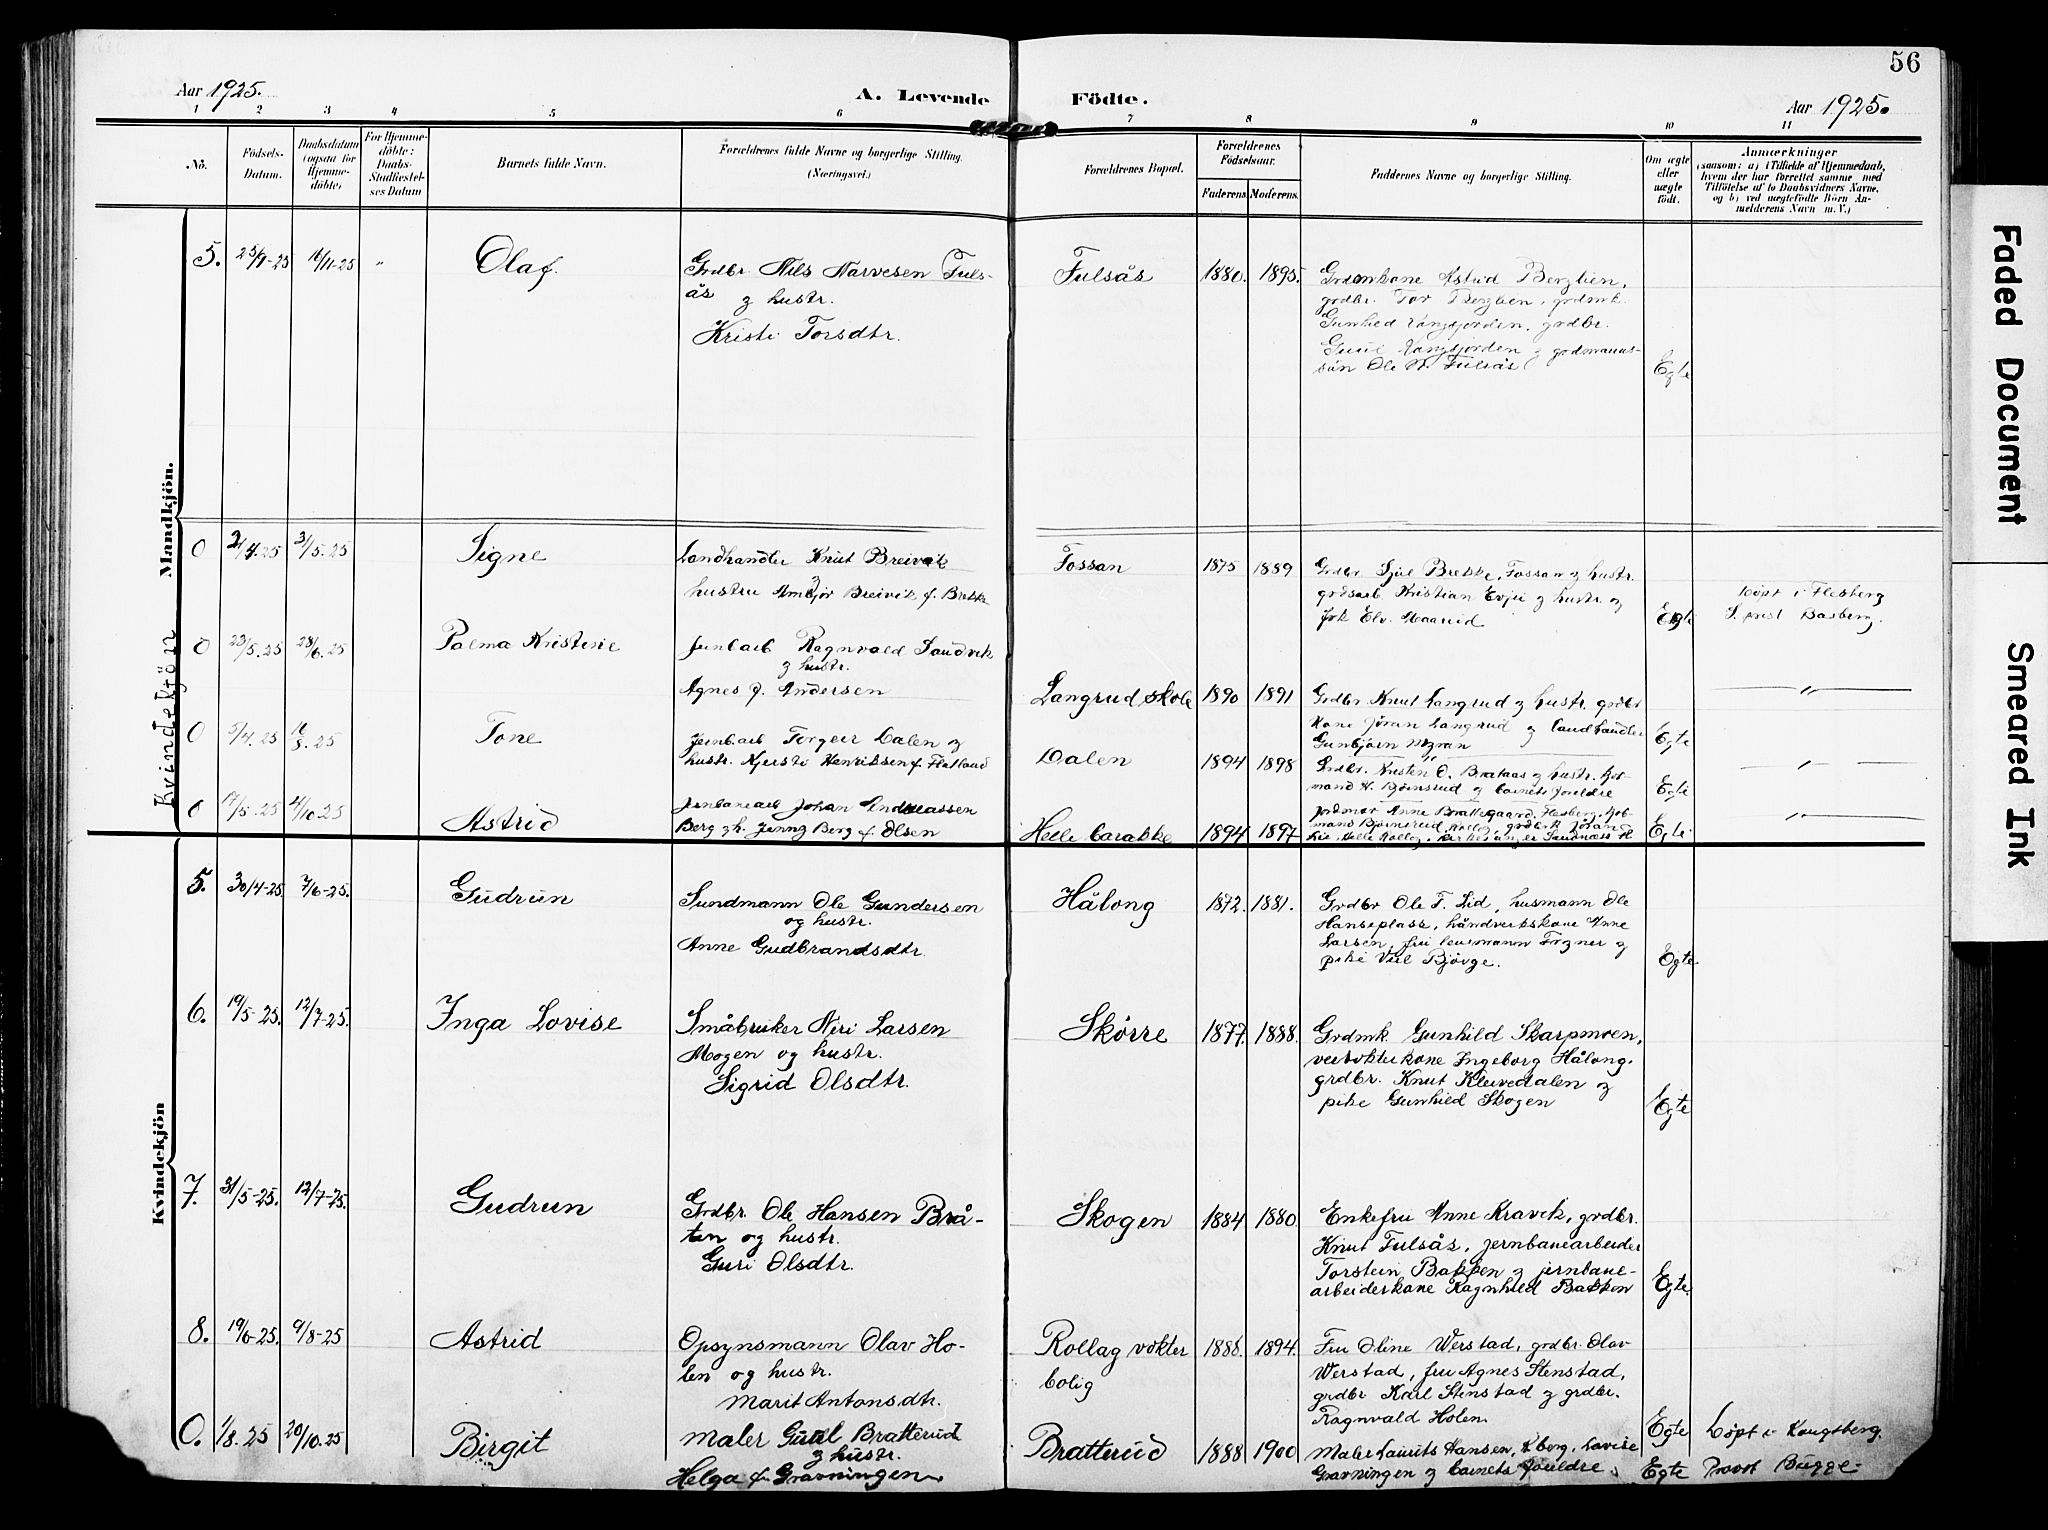 56
Aar 1925.
A. Levende
Födte.
Aar 1925.
1 2 3 4 5 6 7 8 9 10 11
No.
Födsels-
Datum.
Daabsdatum
(ogsaa for
Hjemme-
döbte)
For Hjemme-
döbte:
Daabs-
Stadfestel-
ses Datum
Barnets fulde Navn.
Forældrenes fulde Navne og borgerlige Stilling.
(Næringsvei.)
Forældrenes Bopæl.
Forældrenes
Födselsaar.
Faderens.
Moderens.
Faddernes Navne og borgerlige Stilling.
Om ægte
eller
uægte
födt.
Anmærkninger
(saasom: a) i Tilfælde af Hjemmedaab,
hvem der har forrettet samme med
Tilföielse af to Daabsvidners Navne,
og b) ved uægtefödte Börn An-
melderens Navn m. V.)
Mandkjön.
5. 25/9-25 "
Olaf.
Grdbr. Nils Narvesen Fuls-
ås og hustr.
Kristi Torsdtr.
Fulsås
1880. 1895.
Grdmkone Astrid Berglien,
grdbr. Tor Berglien, grdmk.
Gunhild Vangsjorden, grdbr.
Guul Vangsjorden og grdmanns-
sön Ole N. Fulsås
Egte
Kvindekjön
0 2/4.25 31/5.25
Signe
Landhandler Knut Breivik
hustru Breivik f. Brekke
Fossan
1875 1889
Grdbr Sjul Brekke, Fossan og hustr.
grdsarb Kristian Evju og hustr. og
Egte
Döpt i Flesberg
S. prest Basberg.
0 23/5.25 28/6.25
Palma Kristine
Jernbarb Ragnvald Sandvik
og hustr.
Agnes f. Andersen
Langrud skole
1890 1891
Grdbr Knut Langrud og hustr. grdbr
kone Jöran Langrud og landhandler
Gunbjörn Moran
Egte
"
0 5/4.25
Tone
Jernbarb Torgeir Dalen og
hustr. Kjersti Henriksen f. Flatland
Dalen
1894 1898
Grdbr. Kristen O. Brataas og hustr.
mand H. Björnsrud og barnets foreldre
Egte
"
0 17/5.25 4/10.25
Astrid
Jernbanearb Johan Andreassen
Berg og h. Jenny Berg f. Olsen
Helle barakke
1894 1897
Anne Brattegaard, Flesberg,
Egte.
"
Kvindekjön
5. 30/4-25 7/6-25.
Gudrun
Sundmann Ole Gundersen
og hustr.
Anne Gudbrandsdtr.
Hålong
1872. 1881.
Grdbr Ole T. Lid, husmann Ole
Hanseplass, håndverkskone Anne
Larsen, fru lensmann Fogner og
pike Viel Bjövge.
Egte
6. 19/5-25. 12/7-25.
Inga Lovise
Småbruker Niri Larsen
Mogen og hustr.
Sigrid Olsdtr.
Skörre
1877. 1888.
Grdmk Gunhild Skarpmoen,
veivokterkone Ingeborg Hålong,
grdbr. Knut Kleivedalen og
pike Gunhild Skogen
Egte
7. 31/5-25. 12/7-25.
Gudrun
Grdbr. Ole Hansen Brå-
ten og hustr.
Guri Olsdtr.
Skogen
1884 1880.
Enkefru Anne Kravik, grdbr.
Knut Fulsås, jernbanearbeider
Torstein Bakken og jernbane-
arbeiderkone Ragnhild Bakken
Egte.
8. 19/6-25. 9/8-25
Astrid
Opsynsmann Olav Ho-
len og hustr.
Marit Antonsdtr.
Rollag vokter
bolig
1888. 1894.
Fru Oline Werstad, grdbr. Olav
Werstad, fru Agnes Stenstad,
grdbr Karl Stenstad og grdbr.
Ragnvald Holen
Egte
0. 1/8.25 20/10.25
Birgit
Maler Guul Bratterud
og hustr.
Helga f. Gravningen
Bratterud
1888 1900
Maler Laurits Hansen, Kberg, Lovise
Gravningen og barnets foreldre.
Egte
Döpt i Kongsberg.
Provst Bugge.
Faded Document
Smeared Ink